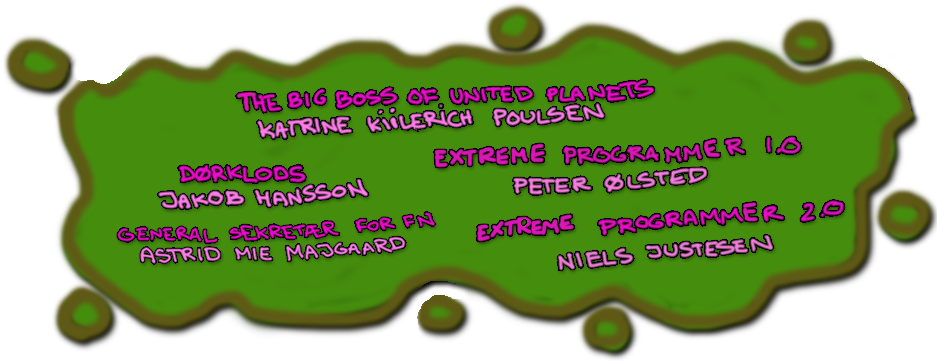 THE BIG BOSS OF UNITED PLANETS
KATRINE KiiLERiCH POULSEN
DØRKLODS
JAKOB HANSSON
GENERAL SEKRETÆR FOR FN
ASTRID MIE MAJGAARD
EXTREME PROGRAMMER 1.0
PETER ØLSTED
EXTREME PROGRAMMER 2.0
NIELS JUSTESEN